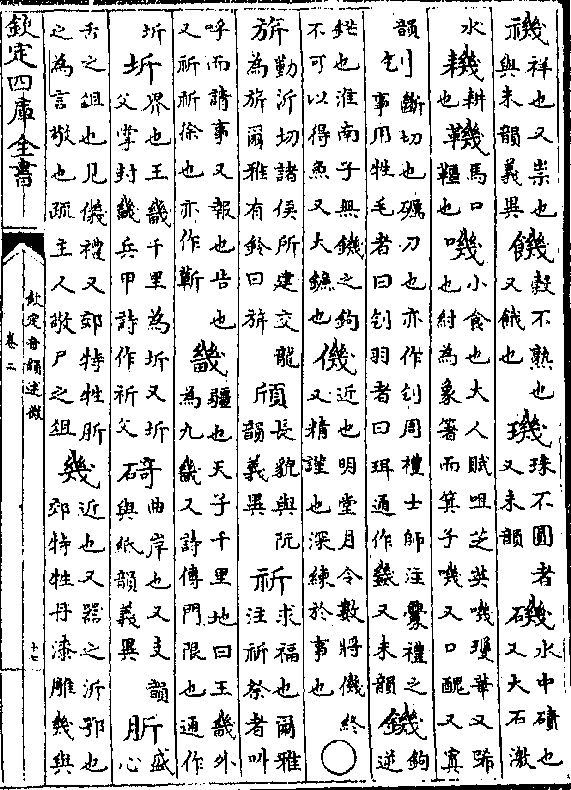 禨祥也又祟也與未韻義異饑穀不熟也又餓也璣珠不圓者又未韻磯水中磧也石又大石激
水耭耕也鞿馬口韁也嘰小食也大人賦咀芝英嘰瓊華又歸也紂為象箸而箕子嘰又口醜又寘
韻刏斷切也礪刀也亦作刉周禮士師注釁禮之事用牲毛者曰刉羽者曰珥通作幾又未韻鐖鉤逆
鋩也淮南子無鐖之鉤不可以得魚又大鐮也僟近也明堂月令數將僟終又精謹也深練於事也○
旂勤沂切諸侯所建交龍為旂爾雅有鈴曰旂頎長貌與阮韻義異祈求福也爾雅注祈祭者叫
呼而請事又報也告也又祈祈徐也亦作蘄畿疆也天子千里地曰王畿外為九畿又詩傳門限也通作
圻圻界也王畿千里為圻又圻父掌封畿兵甲詩作祈父碕曲岸也又支韻石與紙韻義異肵盛心
舌之俎也見儀禮又郊特牲肵之為言敬也疏主人敬尸之俎幾近也又器之沂鄂也郊特牲丹漆雕幾與
欽定四庫全書
欽定音韻述微
卷二
十七